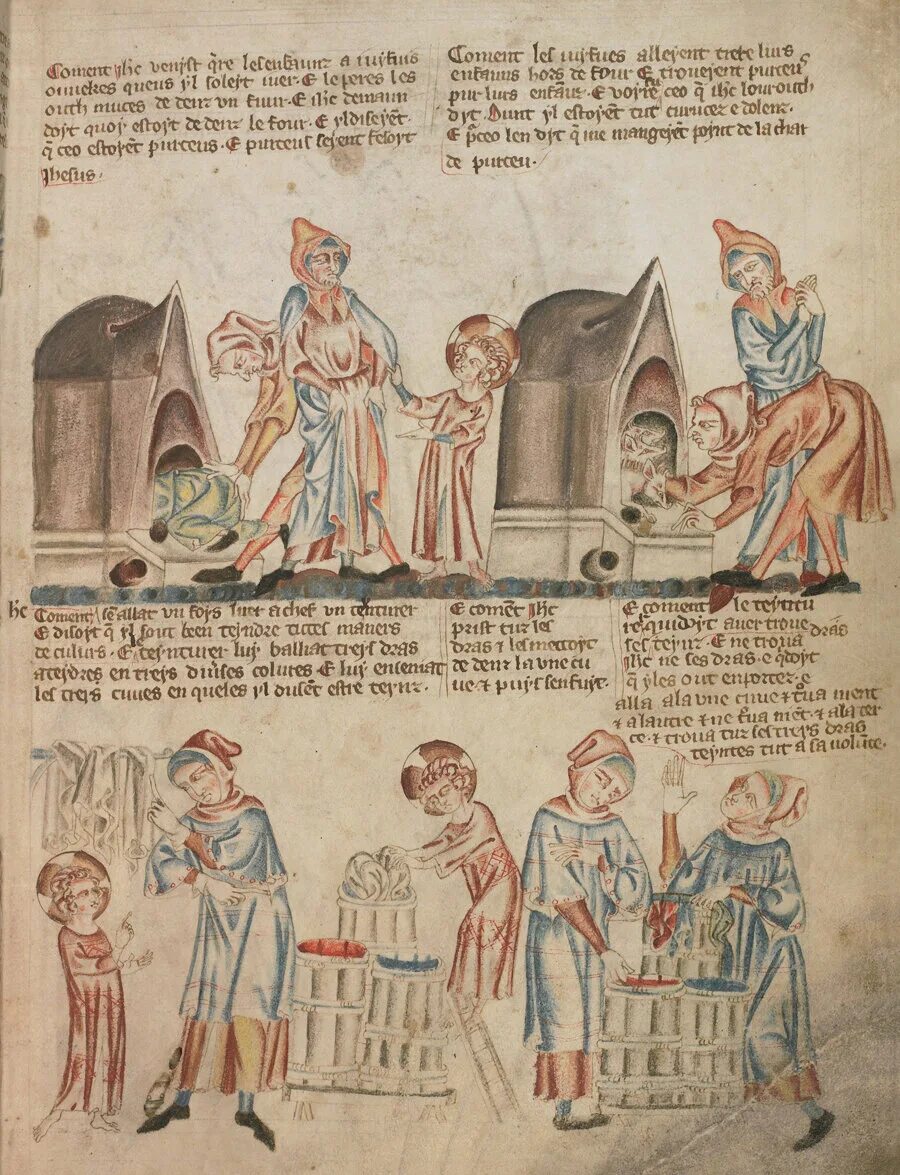 Coment ihc venist q̃re les enfaunz a iuyfuis
ouuekes queus yl soleyt iuer. E le peres les
outh muces de denz vn fuur. E ihc demaun
doyt quoy estoyt de denz le four. E yl diseyẽt.
q̃ ceo estoyẽt purceus. E purceus seyent fesoyt
Jhesus.
Coment les iuyfues alleyent trere lurs
enfauns hors de four E trouerent purceus
pur lurs enfauz. E voyre ceo q̃ ihc lour outh
dyt. Dunt yl estoyẽt tut curucez e dolenz.
E p̃ceo len dyt q̃ ne mangeyẽt poynt de la char
de purceu.
ihc
Coment se allat vn foys iuer a chef vn teinturer
E disoyt q̃ yl sout been teyndre tutes maners
de culurs. E teynturer luy balliat treys dras
a teydres en treys diuises colures. E luy enseniat
les treys cuues en queles yl dusẽt estre teynz.
E comẽt ihc
prist tuz les
dras & les mettoyt
de denz la vne cu
ue & puys sen fuyt.
E coment le teyntu
rer quidoyt auer troue dras
ses teynz. E ne troua
ihc ne ses dras. e q̃doyt
q̃ yl les out enporter. e
alla a la vne cuue & t̃ua nient
& a lautre & ne t̃ua niẽt. & a la ter
ce. & troua tuz ses treys dras
teyntes tut a sa volũte.